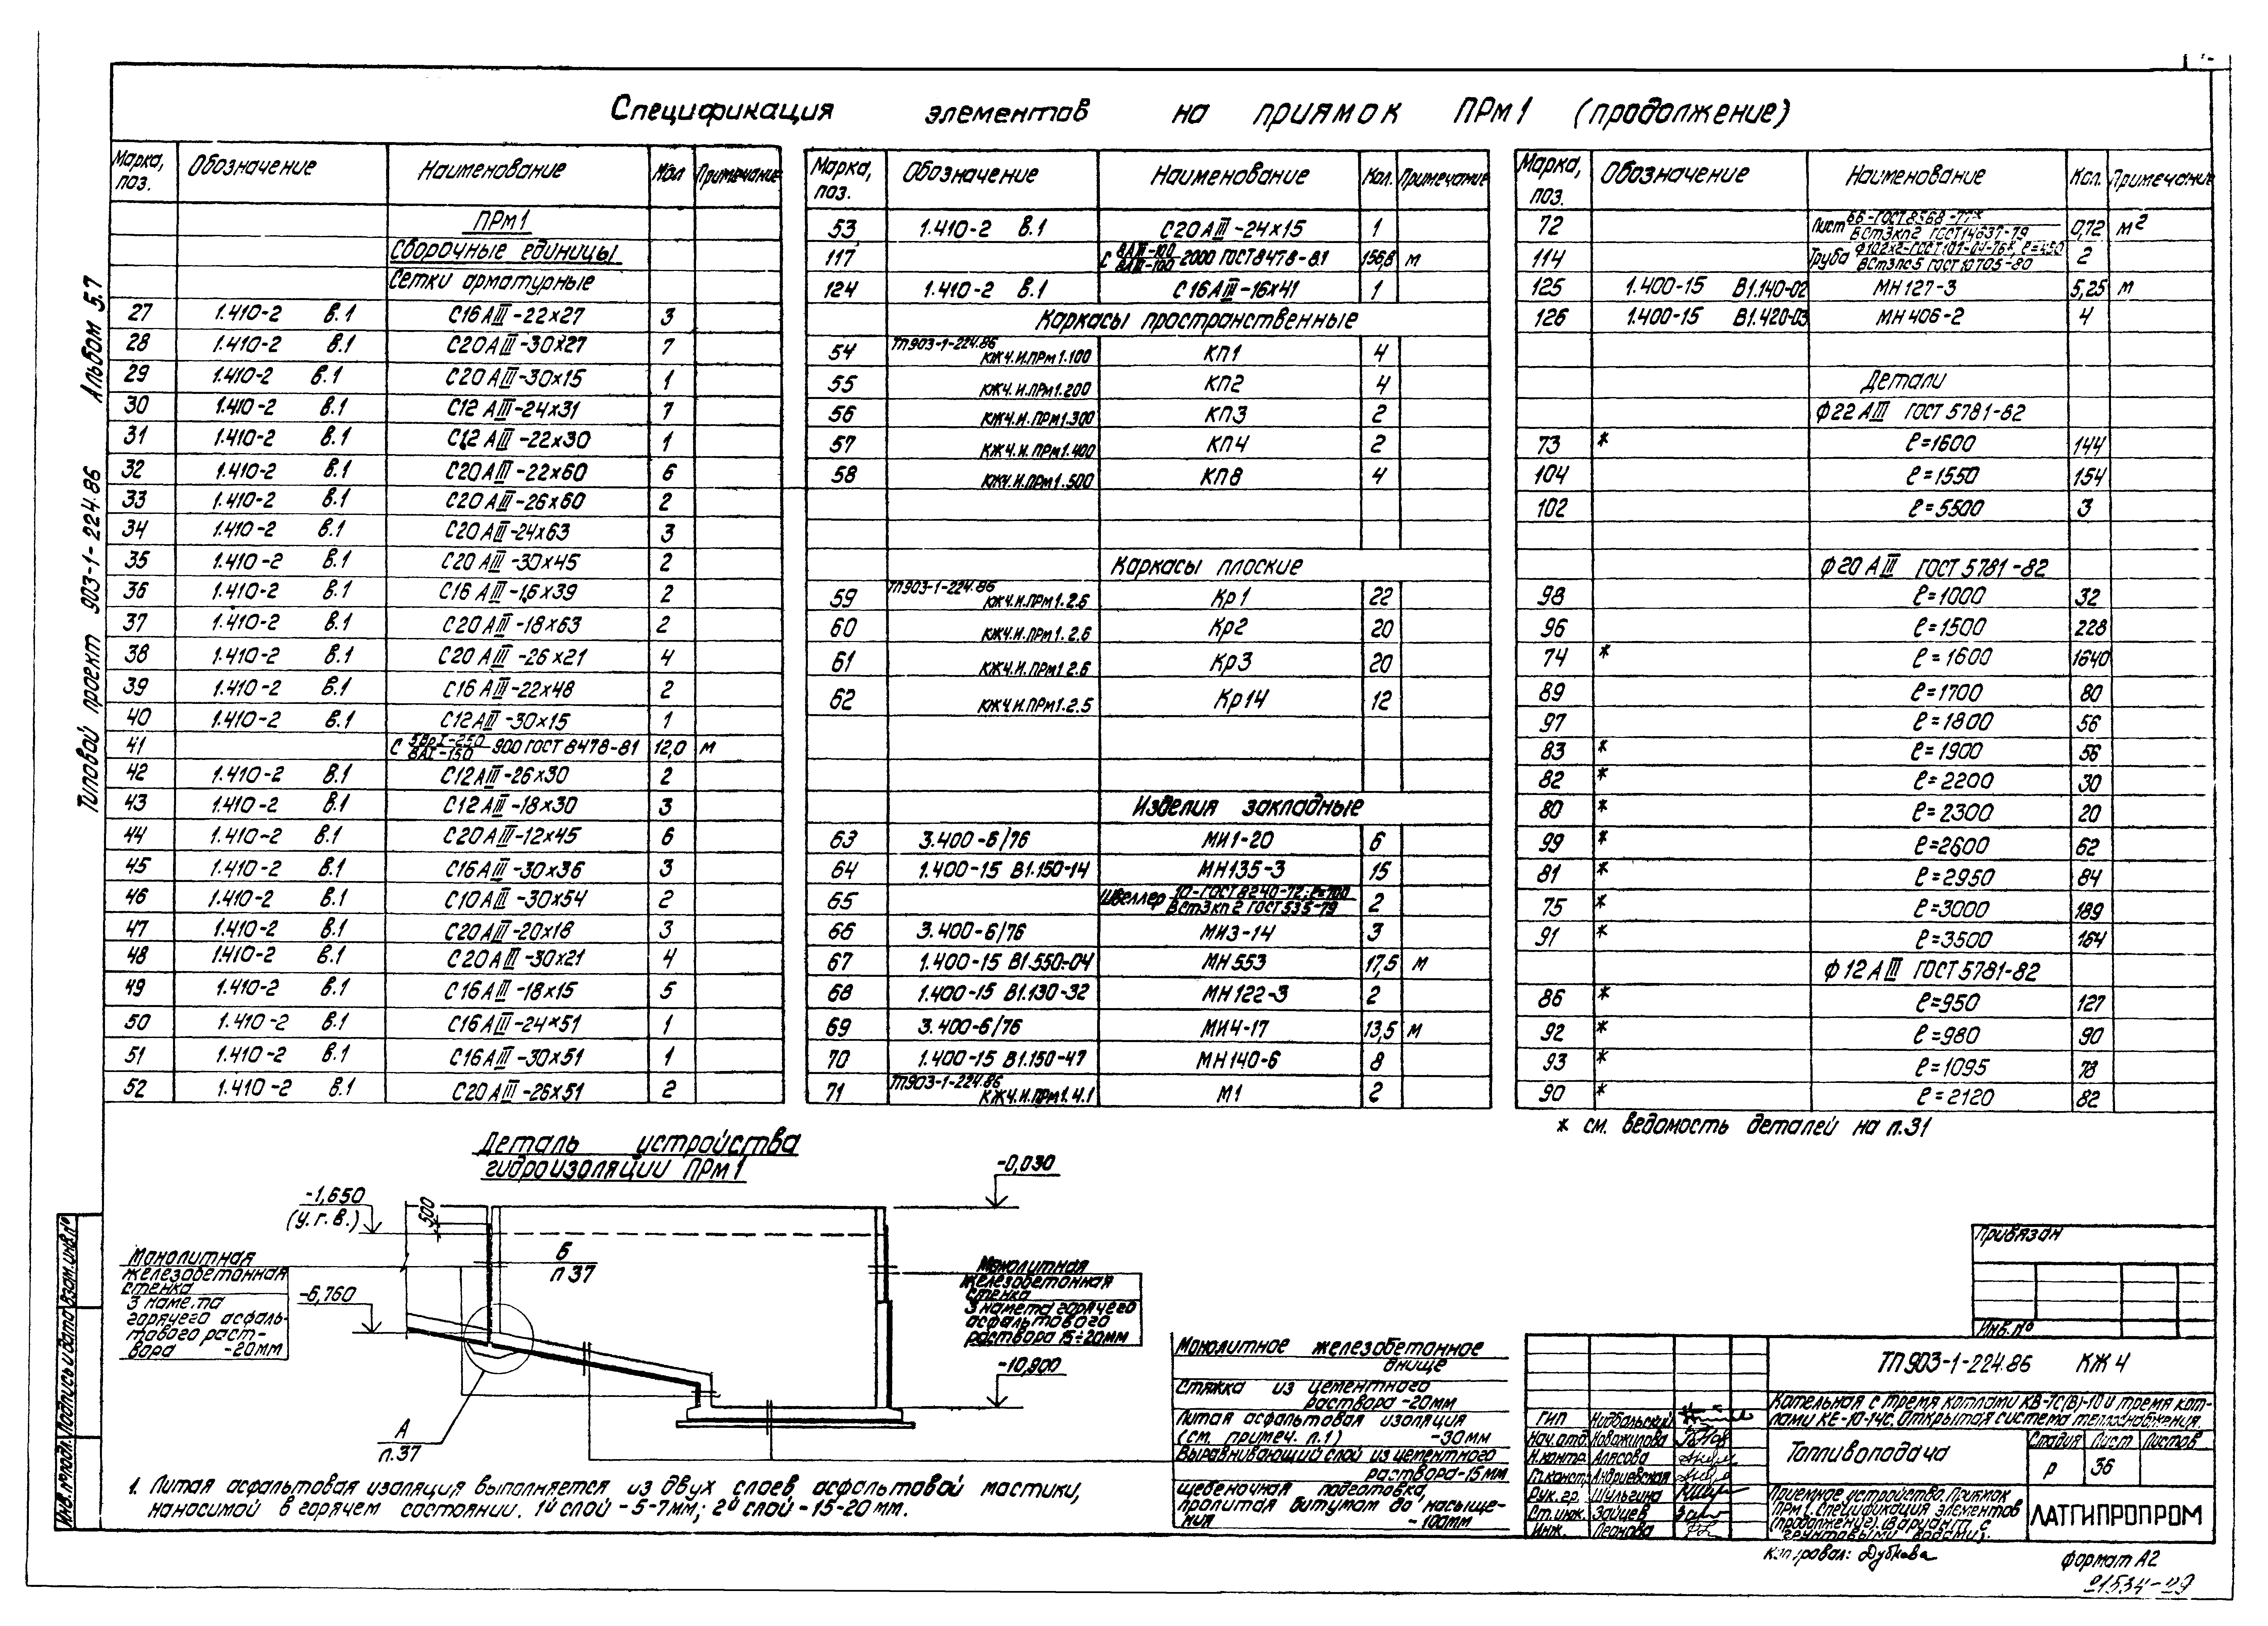 Спецификация элементов на приямок ПРм1 (продолжение)
Альбом 5.7
Типовой проект 903-1-224.86
Марка, поз. Обозначение Наименование Кол Примечание
ПРм1
Сборочные единицы
Сетки арматурные
27 1.410-2 в.1 С16АIII-22х27 3
28 1.410-2 в.1 С20АIII-30х27 7
29 1.410-2 в.1 С20АIII-30х15 1
30 1.410-2 в.1 С12АIII-24х31 7
31 1.410-2 в.1 С12АIII-22х30 1
32 1.410-2 в.1 С20АIII-22х60 6
33 1.410-2 в.1 С20АIII-26х60 2
34 1.410-2 в.1 С20АIII-24х63 3
35 1.410-2 в.1 С20АIII-30х45 2
36 1.410-2 в.1 С16АIII-16х39 2
37 1.410-2 в.1 С20АIII-18х63 2
38 1.410-2 в.1 С20АIII-26х21 4
39 1.410-2 в.1 С16АIII-22х48 2
40 1.410-2 в.1 С12АIII-30х15 1
41 С 5ВрI-250/8АI-150-900 ГОСТ 8478-81 12,0 м
42 1.410-2 в.1 С12АIII-26х30 2
43 1.410-2 в.1 С12АIII-18х30 3
44 1.410-2 в.1 С20АIII-12х45 6
45 1.410-2 в.1 С16АIII-30х36 3
46 1.410-2 в.1 С10АIII-30х54 2
47 1.410-2 в.1 С20АIII-20х18 3
48 1.410-2 в.1 С20АIII-30х21 4
49 1.410-2 в.1 С16АIII-18х15 5
50 1.410-2 в.1 С16АIII-24х51 1
51 1.410-2 в.1 С16АIII-30х51 1
52 1.410-2 в.1 С20АIII-26х51 2
Марка, поз. Обозначение Наименование Кол. Примечание
53 1.410-2 в.1 С20АIII-24х15 1
117 С 8АIII-100/8АIII-100-2000 ГОСТ 8478-81 156,8 м
124 1.410-2 в.1 С16АIII-16х41 1
Каркасы пространственные
54 ТП903-1-224.86 КЖ4.И.ПРм1.100 КП1 4
55 КЖ4.И.ПРм1.200 КП2 4
56 КЖ4.И.ПРм1.300 КП3 2
57 КЖ4.И.ПРм1.400 КП4 2
58 КЖ4.И.ПРм1.500 КП8 4
Каркасы плоские
59 ТП903-1-224.86 КЖ4.И.ПРм1.2.6 Кр1 22
60 КЖ4.И.ПРм1.2.6 Кр2 20
61 КЖ4.И.ПРм1.2.6 Кр3 20
62 КЖ4.И.ПРм1.2.5 Кр14 12
Изделия закладные
63 3.400-6/76 МИ1-20 6
64 1.400-15 В1.150-14 МН135-3 15
65 Швеллер 10-ГОСТ8240-72; ℓ=700/ВСт3кп2 ГОСТ535-79 2
66 3.400-6/76 МИ3-14 3
67 1.400-15 В1.550-04 МН553 17,5 м
68 1.400-15 В1.130-32 МН122-3 2
69 3.400-6/76 МИ4-17 13,5 м
70 1.400-15 В1.150-47 МН140-6 8
71 ТП903-1-224.86 КЖ4.И.ПРм1.4.1 М1 2
Марка, поз. Обозначение Наименование Кол. Примечание
72 Лист б6-ГОСТ8568-77*/ВСт3кп2 ГОСТ14637-79 0,72 м2
114 Труба ф102х2-ГОСТ10704-76*, ℓ=450/ВСт3пс5 ГОСТ10705-80 2
125 1.400-15 В1.140-02 МН127-3 5,25 м
126 1.400-15 В1.420-03 МН406-2 4
Детали
ф22АIII ГОСТ 5781-82
73 * ℓ=1600 144
104 ℓ=1550 154
102 ℓ=5500 3
ф20АIII ГОСТ 5781-82
98 ℓ=1000 32
96 ℓ=1500 228
74 * ℓ=1600 1640
89 ℓ=1700 80
97 ℓ=1800 56
83 * ℓ=1900 56
82 * ℓ=2200 30
80 * ℓ=2300 20
99 * ℓ=2600 62
81 * ℓ=2950 84
75 * ℓ=3000 189
91 * ℓ=3500 164
ф12АIII ГОСТ5781-82
86 * ℓ=950 127
92 * ℓ=980 90
93 * ℓ=1095 78
90 * ℓ=2120 82
* см. ведомость деталей на л.31
Деталь устройства
гидроизоляции ПРм1
-1,650
(у.г.в.)
500
-0,030
Б
л37
-6,760
-10,900
А
л.37
Монолитная
железобетонная
стенка
3 намета
горячего асфаль-
тового раст-
вора -20мм
Монолитная
железобетонная
стенка
3 намета горячего
асфальтового
раствора 15÷20мм
Монолитное железобетонное
днище
Стяжка из цементного
раствора -20мм
Литая асфальтовая изоляция
(см. примеч. п.1) -30мм
Выравнивающий слой из цементного
раствора-15мм
щебеночная подготовка,
пролитая битумом до насыще-
ния -100мм
1. Литая асфальтовая изоляция выполняется из двух слоев асфальтовой мастики,
наносимой в горячем состоянии. 1й слой -5-7мм; 2й слой -15-20мм.
Инв.№подл. Подпись и дата Взам.инв.№
Привязан
Инв.№
ТП903-1-224.86 КЖ4
Котельная с тремя котлами КВ-ТС(В)-10 и тремя кот-
лами КЕ-10-14с. Открытая система теплоснабжения.
ГИП Нидбальский
Нач.отд. Новожилова
Н.контр. Алясова
Гл.констр. Андриевская
Рук.гр. Шульгина
Ст.инж. Зайцев
Инж. Леонова
Топливоподача
Стадия Лист Листов
Р 36
Приемное устройство. Приямок
ПРм1. Спецификация элементов
(продолжение). (Вариант с
грунтовыми водами).
ЛАТГИПРОПРОМ
Копировал: Дубкова
Формат А2
21534-09